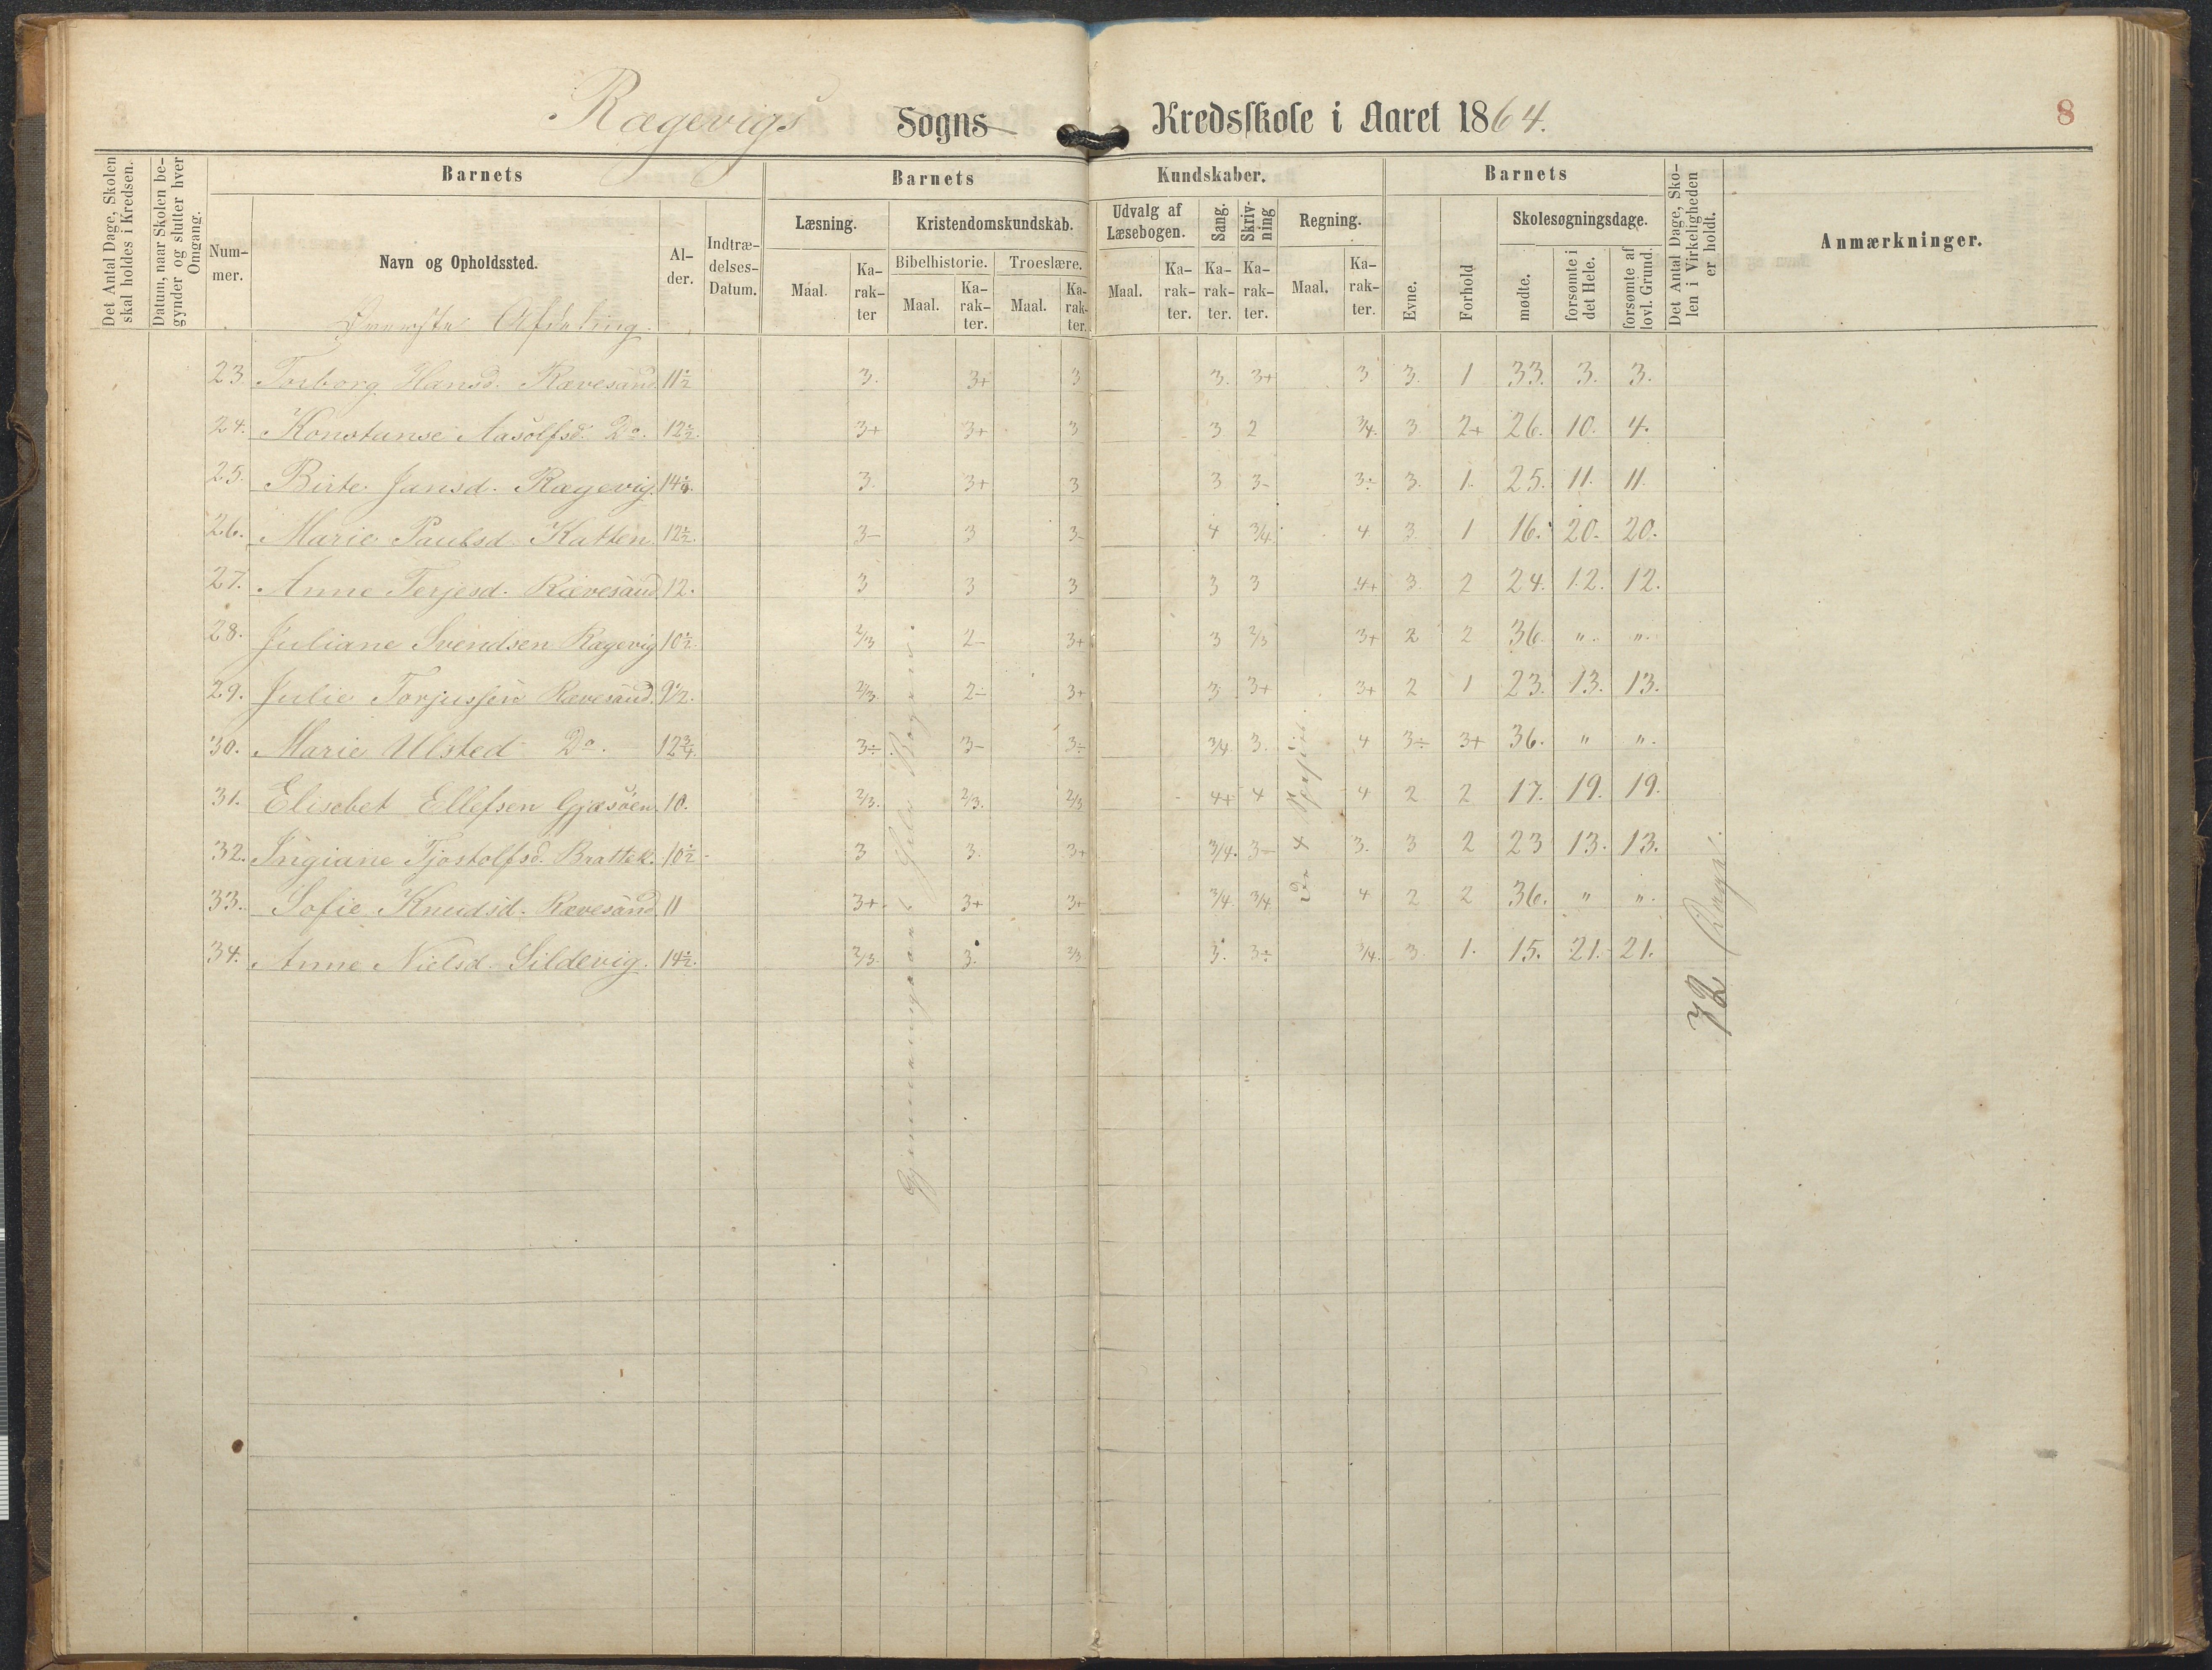 Rægevigs Sogns Kredsskole i Aaret 1864.
8
Det Antal Dage, Skolen skal holdes i Kredsen.
Datum, naar Skolen begynder og slutter hver Omgang.
Barnets
Nummer.
Navn og Opholdssted.
Alder.
Indtrædelses-Datum.
Barnets Kundskaber.
Læsning.
Maal.
Karakter
Kristendomskundskab.
Bibelhistorie.
Maal.
Karakter.
Troeslære.
Maal.
Karakter.
Udvalg af Læsebogen.
Maal.
Karakter.
Sang.
Karakter.
Skrivning
Karakter.
Regning.
Maal.
Karakter.
Barnets
Evne.
Forhold
Skolesøgningsdage.
mødte.
forsømte i det Hele.
forsømte af lovl. Grund.
Det Antal Dage, Skolen i Virkeligheden er holdt.
Anmærkninger.
Øverste Afdeling.
23. Torborg Hansd. Rævesand 11½ 3. 3+ 3 3. 3+ 3 3. 1 33. 3. 3.
24. Konstanse Aasolfsd. Do. 12½. 3+ 3+ 3 3 2 3/4. 3. 2+ 26. 10. 4.
25. Birte Jansd. Rægevig. 14½. 3. 3+ 3 3 3- 3÷ 3. 1. 25. 11. 11.
26. Marie Paulsd. Katten. 12½. 3- 3 3- 4 3/4. 4 3. 1 16. 20. 20.
27. Anne Terjesd. Rævesand 12. 3 3 3 3 3 4+ 3 2 24. 12. 12.
28. Juliane Svendsen Rægevig 10½. 2/3 2- 3+ 3 2/3 3+ 2 2 36. " "
29. Julie Torjussen Rævesand. 9½. 2/3. 2÷ 3+ 3 3+ 3+ 2 1 23. 13. 13.
30. Marie Ulsted Do. 12¾. 3÷ 3- 3÷ 3/4. 3. 4 3÷ 3+ 36. " "
31. Elisebet Ellefsen Gjæsöen. 10. 2/3. 2/3. 2/3 4+ 4 4 2 2 17. 19. 19.
32. Ingiane Tjostolfsd. Brattek. 10½ 3 3. 3+ 3/4. 3- 3. 3 2 23 13. 13.
33. Sofie Knudsd. Rævesand 11 3+ 3+ 3+ 3/4. 3/4 4 2 2 36. " "
34. Anne Nielsd. Sildevig. 14½. 2/3. 3. 2/3 3. 3÷ 3/4. 3. 1. 15. 21. 21.
Gjennemgaaet hele Bogen.
de 4 Species.
72 Dage.